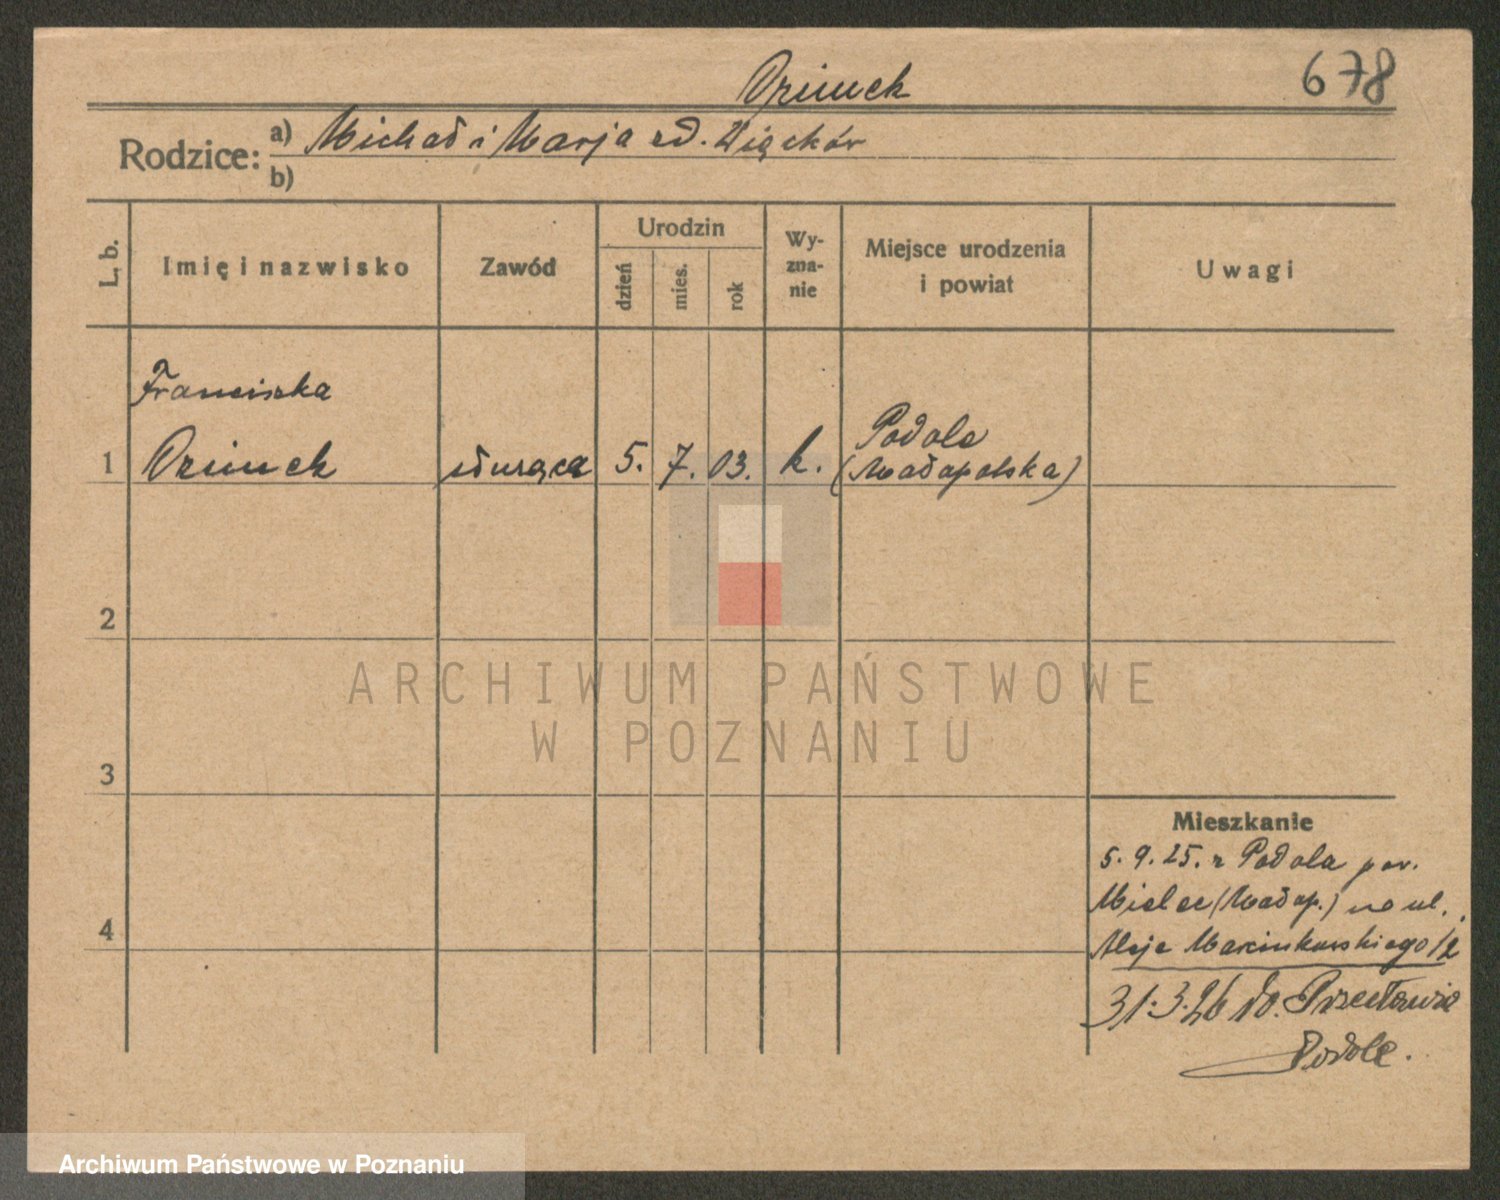 678
Ozimek
Rodzice: a) Michał i Marja zd. Więcków
b)
L. b.
Imię i nazwisko
Zawód
Urodzin
dzień
mies.
rok
Wy-
zna-
nie
Miejsce urodzenia
i powiat
Uwagi
Franciszka
1 Ozimek służąca 5. 7. 03. k. Podole
(Małapolska)
2
3
4
Mieszkanie
5. 9. 25. z Podola pow.
Mielec (Małop.) na ul.
Aleje Marcinkowskiego 12
31.3.26 do. Przecławia
Podole.
ARCHIWUM PAŃSTWOWE
W POZNANIU
Archiwum Państwowe w Poznaniu